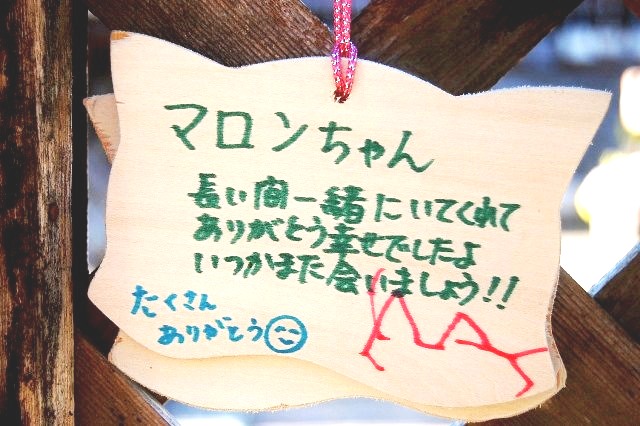 マロンちゃん
長い間一緒にいてくれて
ありがとう幸せでしたよ
いつかまた会いましょう!!
たくさん
ありがとう